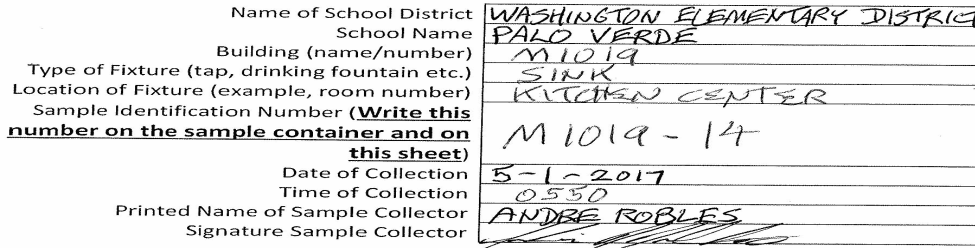 Name of School District WASHINGTON ELEMENTARY DISTRICT
School Name PALO VERDE
Building (name/number) M1019
Type of Fixture (tap, drinking fountain etc.) SINK
Location of Fixture (example, room number) KITCHEN CENTER
Sample Identification Number (Write this
number on the sample container and on M1019-14
this sheet)
Date of Collection 5-1-2017
Time of Collection 0550
Printed Name of Sample Collector ANDRE ROBLES
Signature Sample Collector